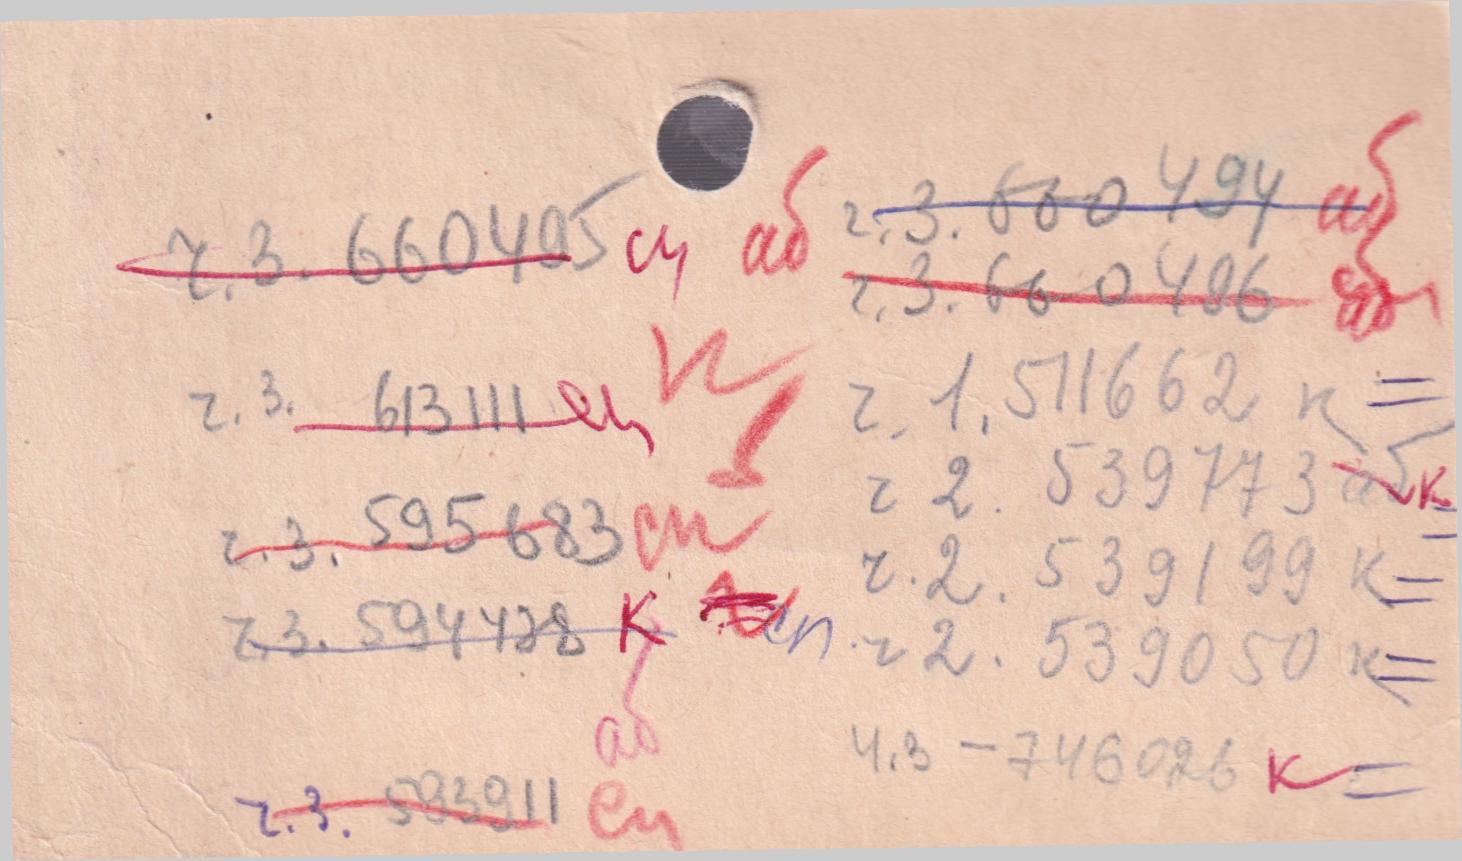 ч.3. 660495 сп аб
ч.3. 613111 сп
ч.3. 595683 сп
ч.3. 594428 к сп
аб
ч.3. 593911 сп
ч.3. 660494 аб
ч.3. 660486
ч. 1. 511662 к =
ч 2. 539773 аб к =
ч.2. 539199 к =
ч 2. 539050 к =
ч.3 - 746026 к =